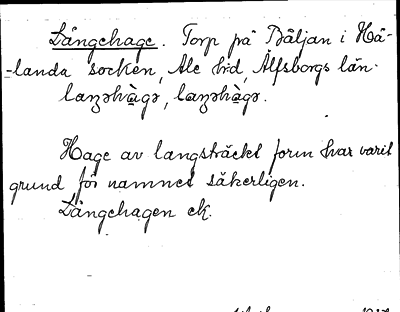 Långehage. Torp på Båljan i Hå-
-landa socken, Ale hrd, Älfsborgs län.
Hage av langsträckt form har varit
grund för namnet säkerligen.
Långehagen ek.